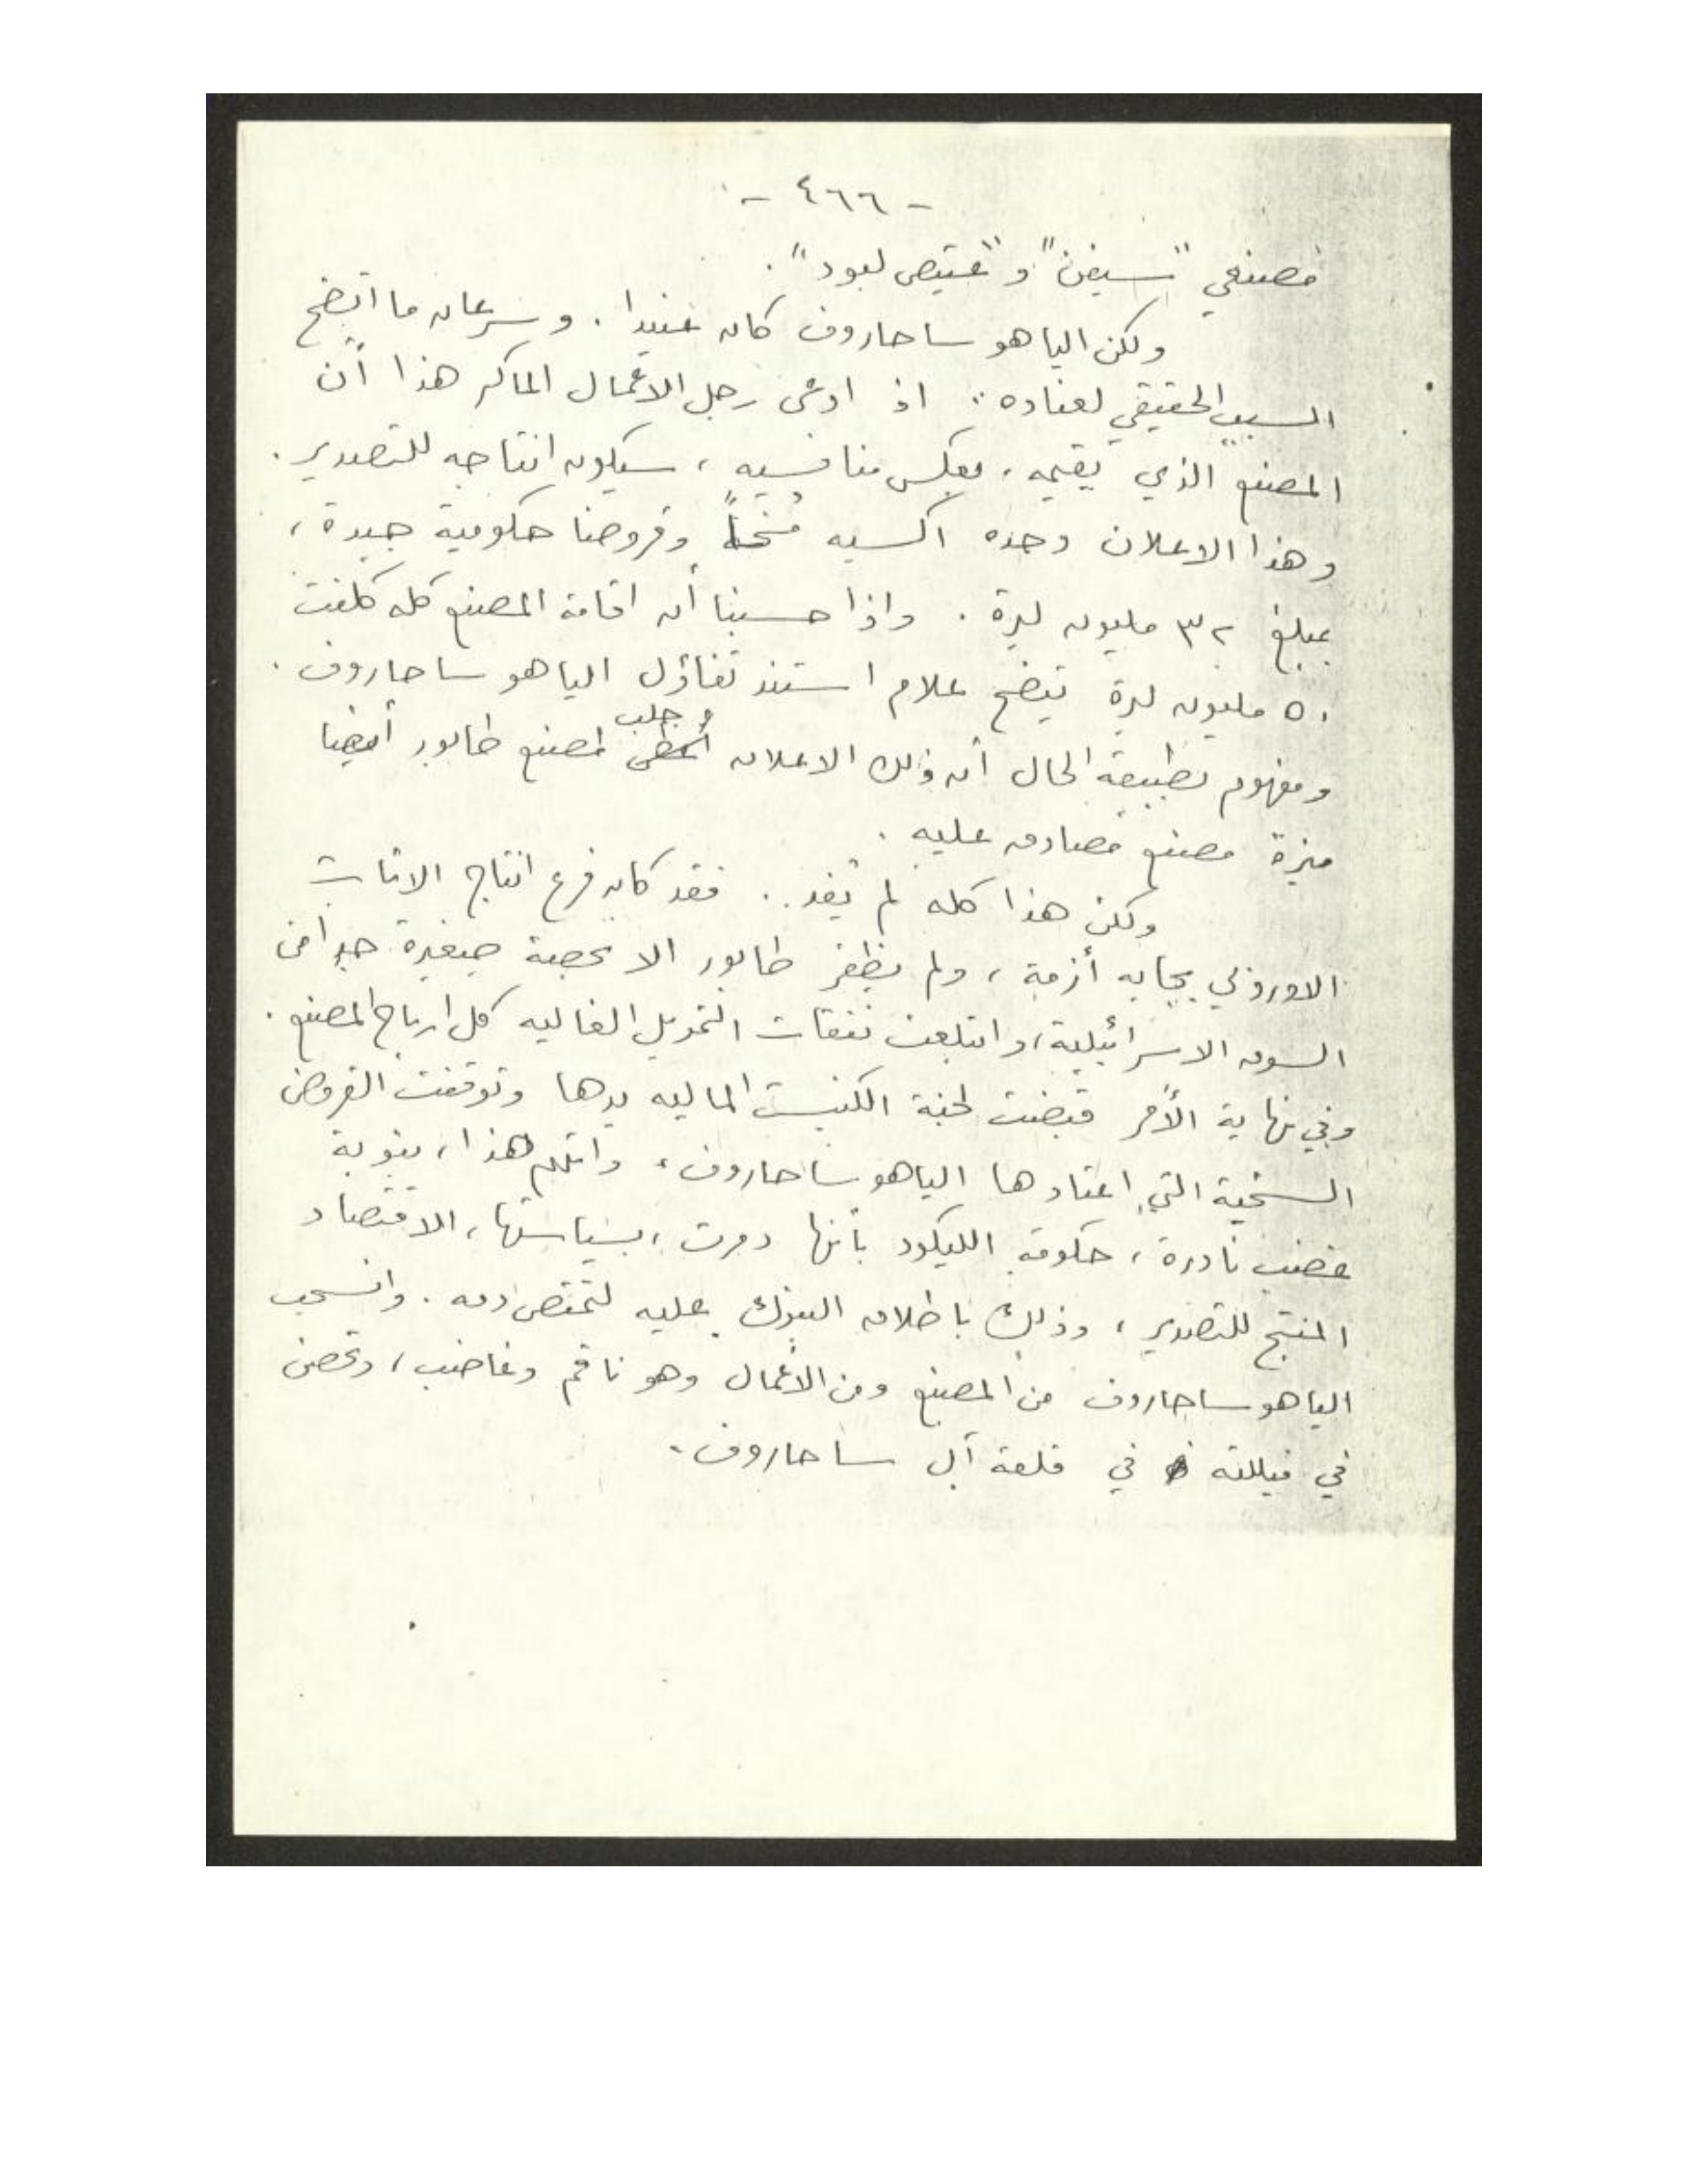 - ٤٦٦ -
مصنعي "سيفن" و "عيتص لبود".
ولكن الياهو ساحاروف كان عنيدا. وسرعان ما اتضح
السبب الحقيقي لعناده: اذ ادعى رجل الاعمال الماكر هذا أن
المصنع الذي يقيمه، بعكس منافسيه، سيكون انتاجه للتصدير.
وهذا الاعلان وحده اكسبه مُنحاً وقروضا حكومية جيدة،
بمبلغ ٣٢ مليون ليرة. واذا حسبنا أن اقامة المصنع كله كلفت
٥٠ مليون ليرة يتضح علام استند تفاؤل الياهو ساحاروف.
ومفهوم بطبيعة الحال أن ذلك الاعلان جلب لمصنع طابور أيضا
ميزة مصنع مصادق عليه.
ولكن هذا كله لم يفد.. فقد كان فرع انتاج الاثاث
الاوروبي يجابه أزمة، ولم يظفر طابور الا بحصة صغيرة جدا من
السوق الاسرائيلية، وابتلعت نفقات التمويل الغاليه كل ارباح المصنع.
وفي نهاية الأمر قبضت لجنة الكنيست الماليه يدها وتوقفت القروض
السخية التي اعتادها الياهو ساحاروف، واتهم هذا، بنوبة
غضب نادرة، حكومة الليكود بأنها دمرت، بسياستها، الاقتصاد
المنتج للتصدير، وذلك باطلاق البنوك عليه لتمتص دمه. وانسحب
الياهو ساحاروف من المصنع ومن الأعمال وهو ناقم وغاضب، وتحصن
في فيللته في قلعة آل ساحاروف.